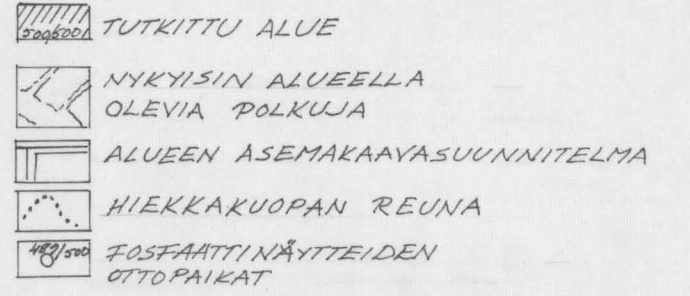 500/500 TUTKITTU ALUE
NYKYISIN ALUEELLA
OLEVIA POLKUJA
ALUEEN ASEMAKAAVASUUNNITELMA
HIEKKAKUOPAN REUNA
489/500 FOSFAATTINÄYTTEIDEN
OTTOPAIKAT